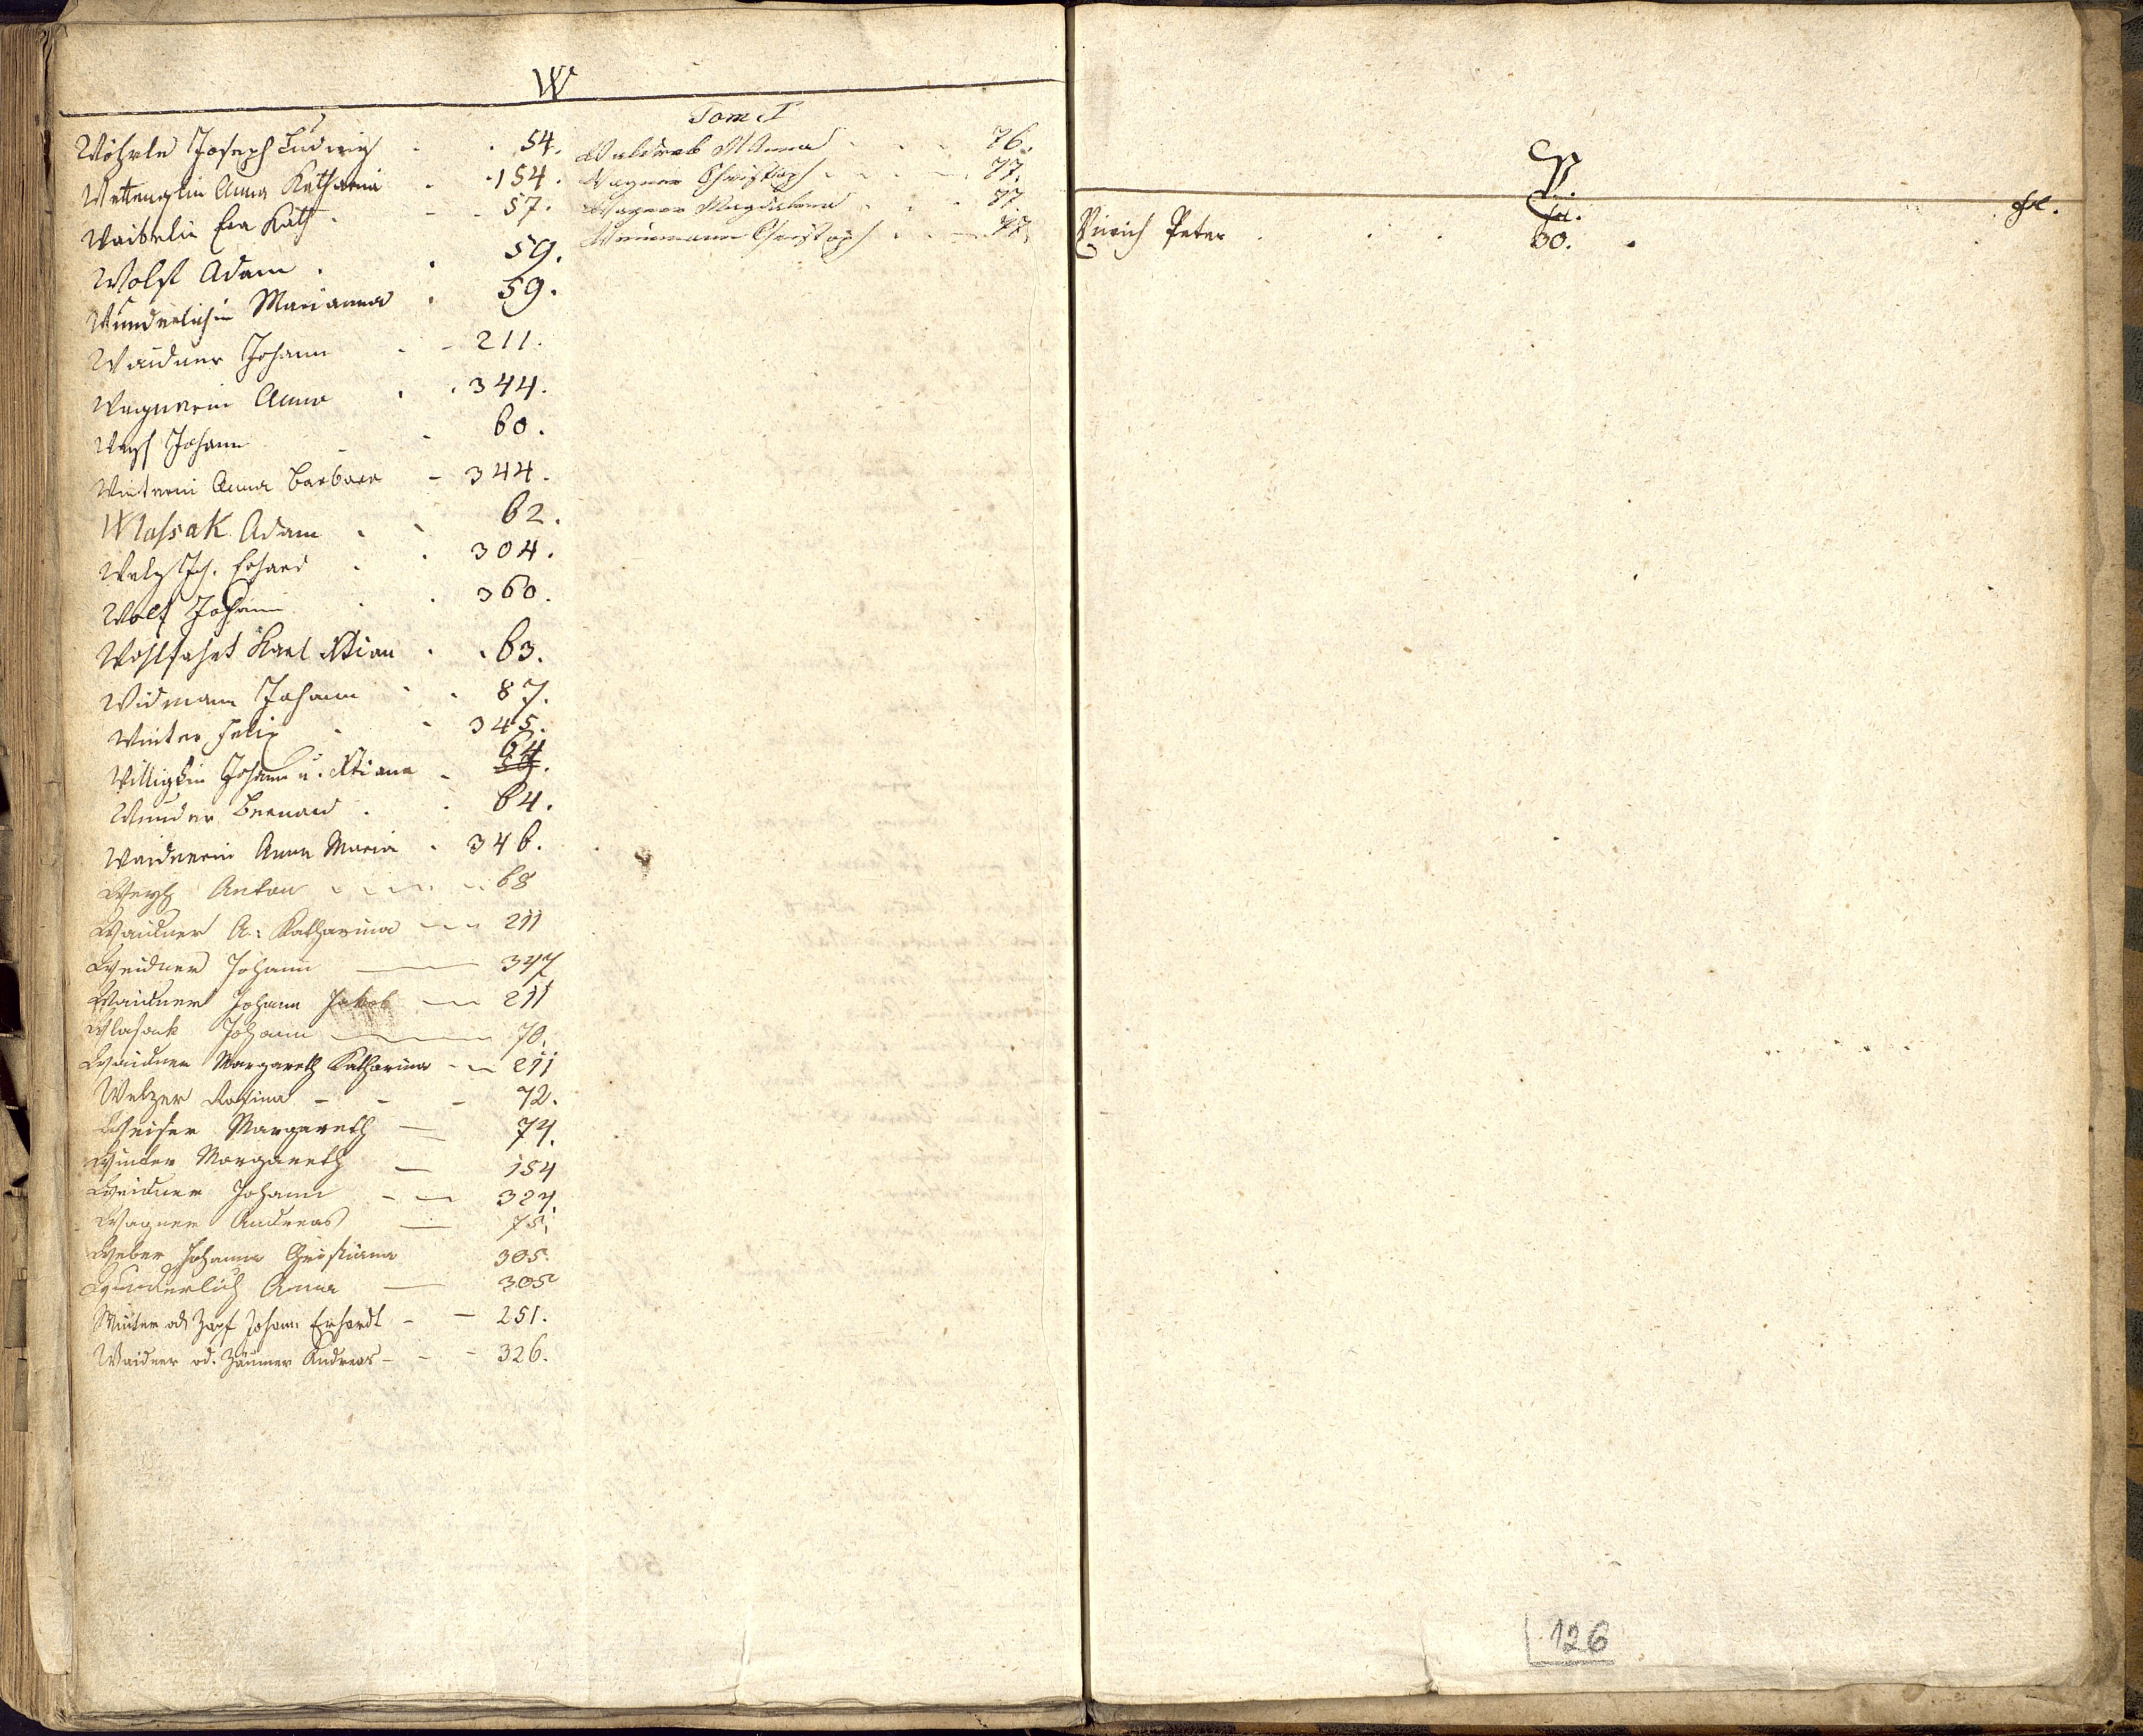 W
Wöhrle Joseph Ludwig . . 54.
Wettenglin Anna Katharina . . 154.
Waibelin Eva Kath. . . 57.
Wolf Adam . . 59.
Wunderlichin Marianna . 59.
Waidner Johann . . 211.
Wagnerin Anna . . 344.
Johann . 60.
Winterin Anna Barbara - 344.
Wlassak Adam . . 62.
Welz Joh. Erhard . . 304.
Wolf Johann . . 360.
Wohlfahrt Karl Xtian . . 63.
Widmann Johann . . 87.
Winter Felix . . 345.
Johann u. Xtiana - 64.
Wunder Bernard . . 64.
Waidnerin Anna Maria . 346.
Anton 68
Waidner A: Katharina 211
Weidner Johann 347
Waidner Johann Jakob 211
Wlasak Johann 70.
Waidner Margareth Katharina 211
Welzer Rosina - - - 72.
Margareth 74.
Winter Margareth 154
Weidner Johann 324.
Wagner Andreas 75.
Weber Johanna Christiana 305.
Wunderlich Anna 305
Winter od. Zapf Johann Erhardt - - 251.
Waidner od. Andreas - - - 326.
Tom. I
Anna . . . 76.
Wagner Christoph . . . 77.
Wagner Magdalena . . . 77.
Christoph . . 78.
Y.
fol. fol.
Peter . . . 30. .
126